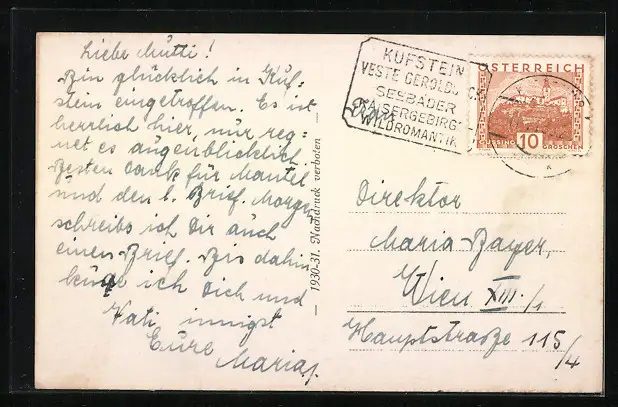 Liebe Mutti!
Bin glücklich in Kuf-
stein eingetroffen. Es ist
herrlich hier, nur reg-
net es augenblicklich.
Besten Dank für Mantel
und den l. Brief. Morgen
schreibe ich Dir auch
einen Brief. Bis dahin
küsse ich Dich und
Vati innigst
Eure
Maria.
1930-31. Nachdruck verboten
KUFSTEIN
VESTE GEROLDSECK
SEEBÄDER
KAISERGEBIRG
WILDROMANTIK
ÖSTERREICH
GÜSSING 10 GROSCHEN
Direktor
Maria Bayer,
Wien XIII./1
Hauptstraße 115
/4